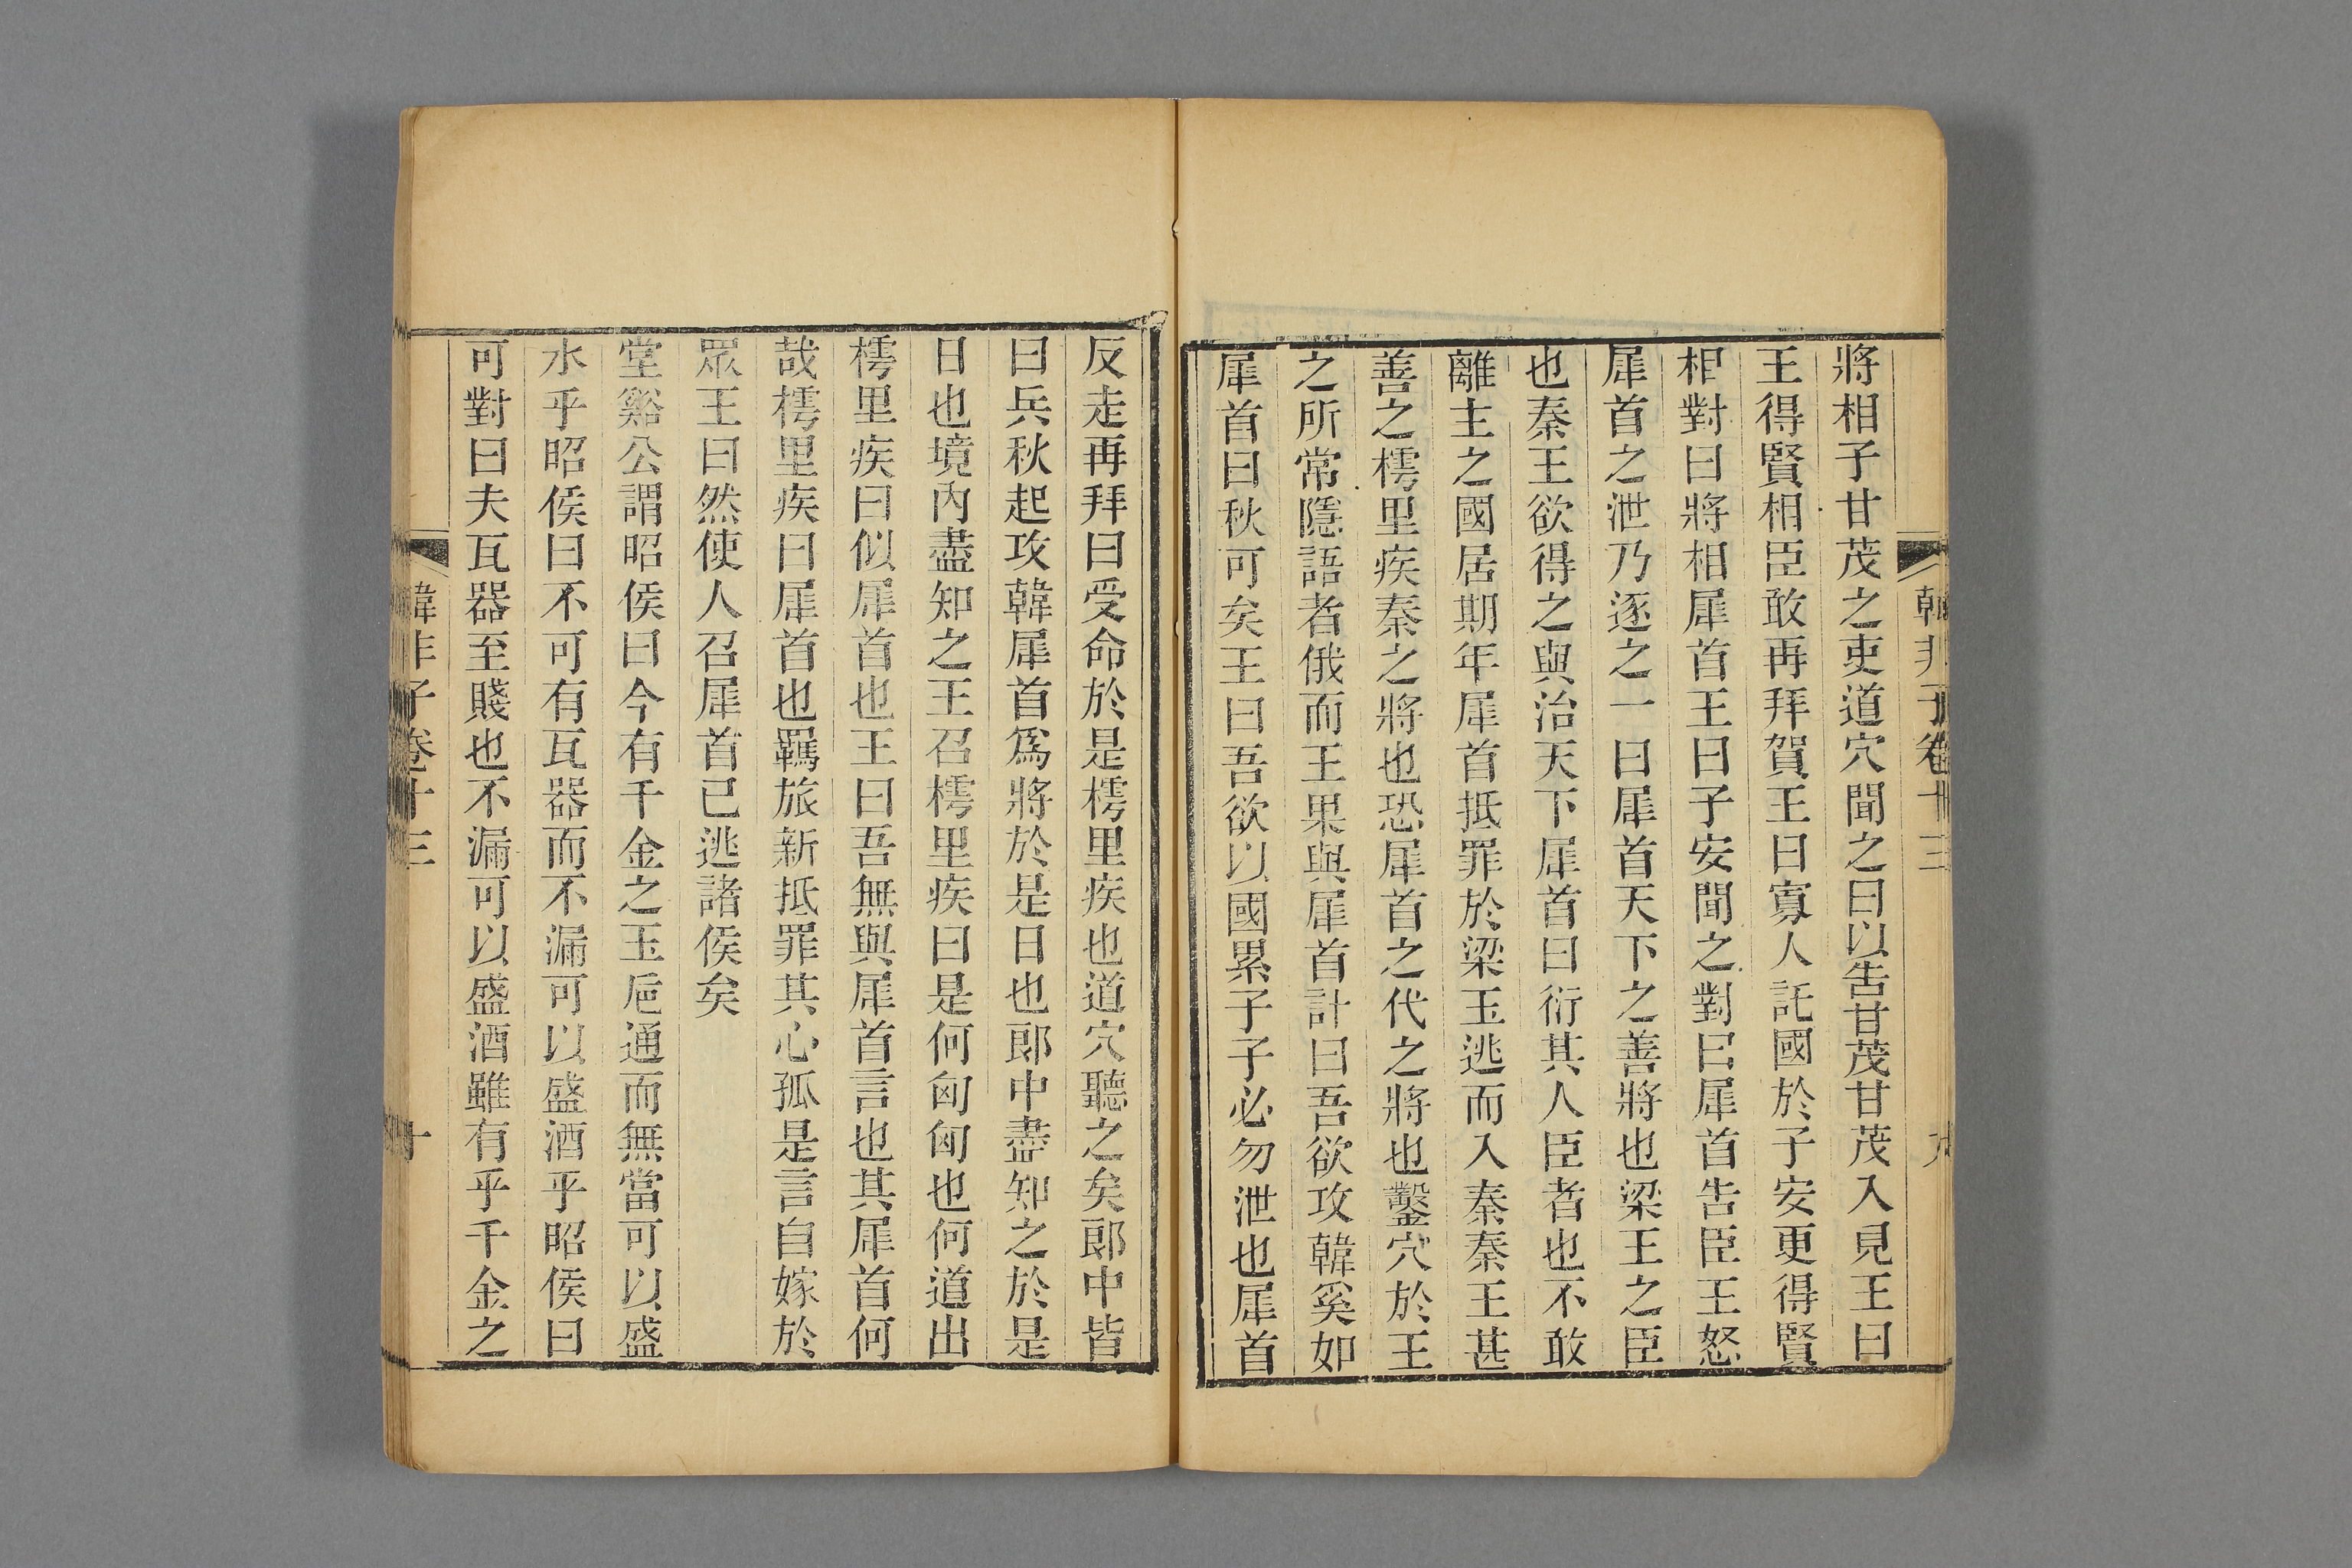 韓非子卷十三
九
將相子甘茂之吏道穴聞之曰以告甘茂甘茂入見王曰
王得賢相臣敢再拜賀王曰寡人託國於子安更得賢
相對曰將相犀首王曰子安聞之對曰犀首告臣王怒
犀首之泄乃逐之一曰犀首天下之善將也梁王之臣
也秦王欲得之與治天下犀首曰衍其人臣者也不敢
離主之國居期年犀首抵罪於梁王逃而入秦秦王甚
善之樗里疾秦之將也恐犀首之代之將也鑿穴於王
之所常隱語者俄而王果與犀首計曰吾欲攻韓奚如
犀首曰秋可矣王曰吾欲以國累子子必勿泄也犀首
反走再拜曰受命於是樗里疾也道穴聽之矣郎中皆
曰兵秋起攻韓犀首爲將於是日也郎中盡知之於是
日也境內盡知之王召樗里疾曰是何匈匈也何道出
樗里疾曰似犀首也王曰吾無與犀首言也其犀首何
哉樗里疾曰犀首也羈旅新抵罪其心孤是言自嫁於
眾王曰然使人召犀首已逃諸侯矣
堂谿公謂昭侯曰今有千金之玉巵通而無當可以盛
水乎昭侯曰不可有瓦器而不漏可以盛酒乎昭侯曰
可對曰夫瓦器至賤也不漏可以盛酒雖有乎千金之
韓非子卷十三
十